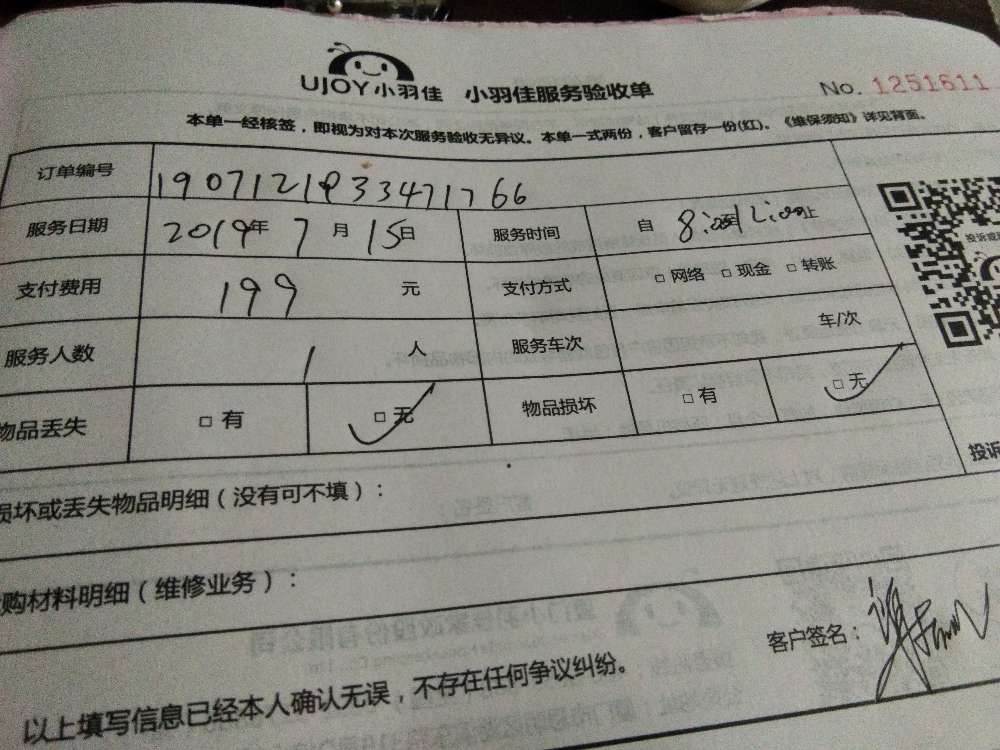 UJOY小羽佳 小羽佳服务验收单 No. 1251611
本单一经核签，即视为对本次服务验收无异议。本单一式两份，客户留存一份(红)。《维保须知》详见背面。
订单编号 1907121933471766
服务日期 2019年 7 月 15日 服务时间 自 8:00 止
支付费用 199 元 支付方式 □ 网络 □ 现金 □ 转账
服务人数 1 人 服务车次 车/次
物品丢失 □ 有 □ 无 物品损坏 □ 有 □ 无
损坏或丢失物品明细（没有可不填）：
购材料明细（维修业务）：
客户签名：
以上填写信息已经本人确认无误，不存在任何争议纠纷。
投诉